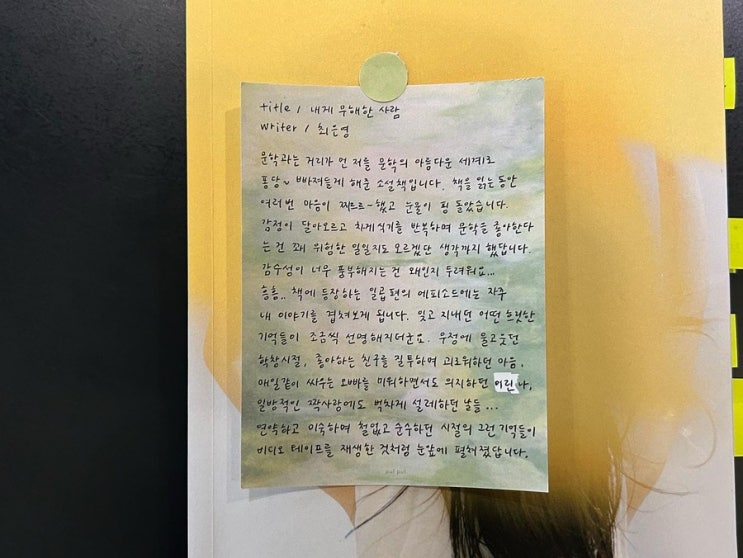 title / 내게 무해한 사람
writer / 최은영
문학과는 거리가 먼 저를 문학의 아름다운 세계로
퐁당~ 빠져들게 해준 소설책입니다. 책을 읽는 동안
여러번 마음이 찌르르~했고 눈물이 핑 돌았습니다.
감정이 달아오르고 차게식기를 반복하며 문학을 좋아한다
는 건 꽤 위험한 일일지도 모르겠단 생각까지 했답니다.
감수성이 너무 풍부해지는 건 왜인지 두려워요...
흠흠.. 책에 등장하는 일곱편의 에피소드에는 자주
내 이야기를 겹쳐보게 됩니다. 잊고 지내던 어떤 흐릿한
기억들이 조금씩 선명해지더군요. 우정에 울고웃던
학창시절, 좋아하는 친구를 질투하며 괴로워하던 마음,
매일같이 싸우는 오빠를 미워하면서도 의지하던 어린 나,
일방적인 짝사랑에도 벅차게 설레하던 날들...
연약하고 미숙하며 철없고 순수하던 시절의 그런 기억들이
비디오 테이프를 재생한 것처럼 눈앞에 펼쳐졌답니다.